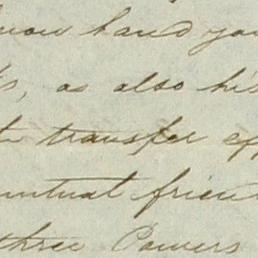 now hand you
as also his
transfer
mutual frien
three Powers